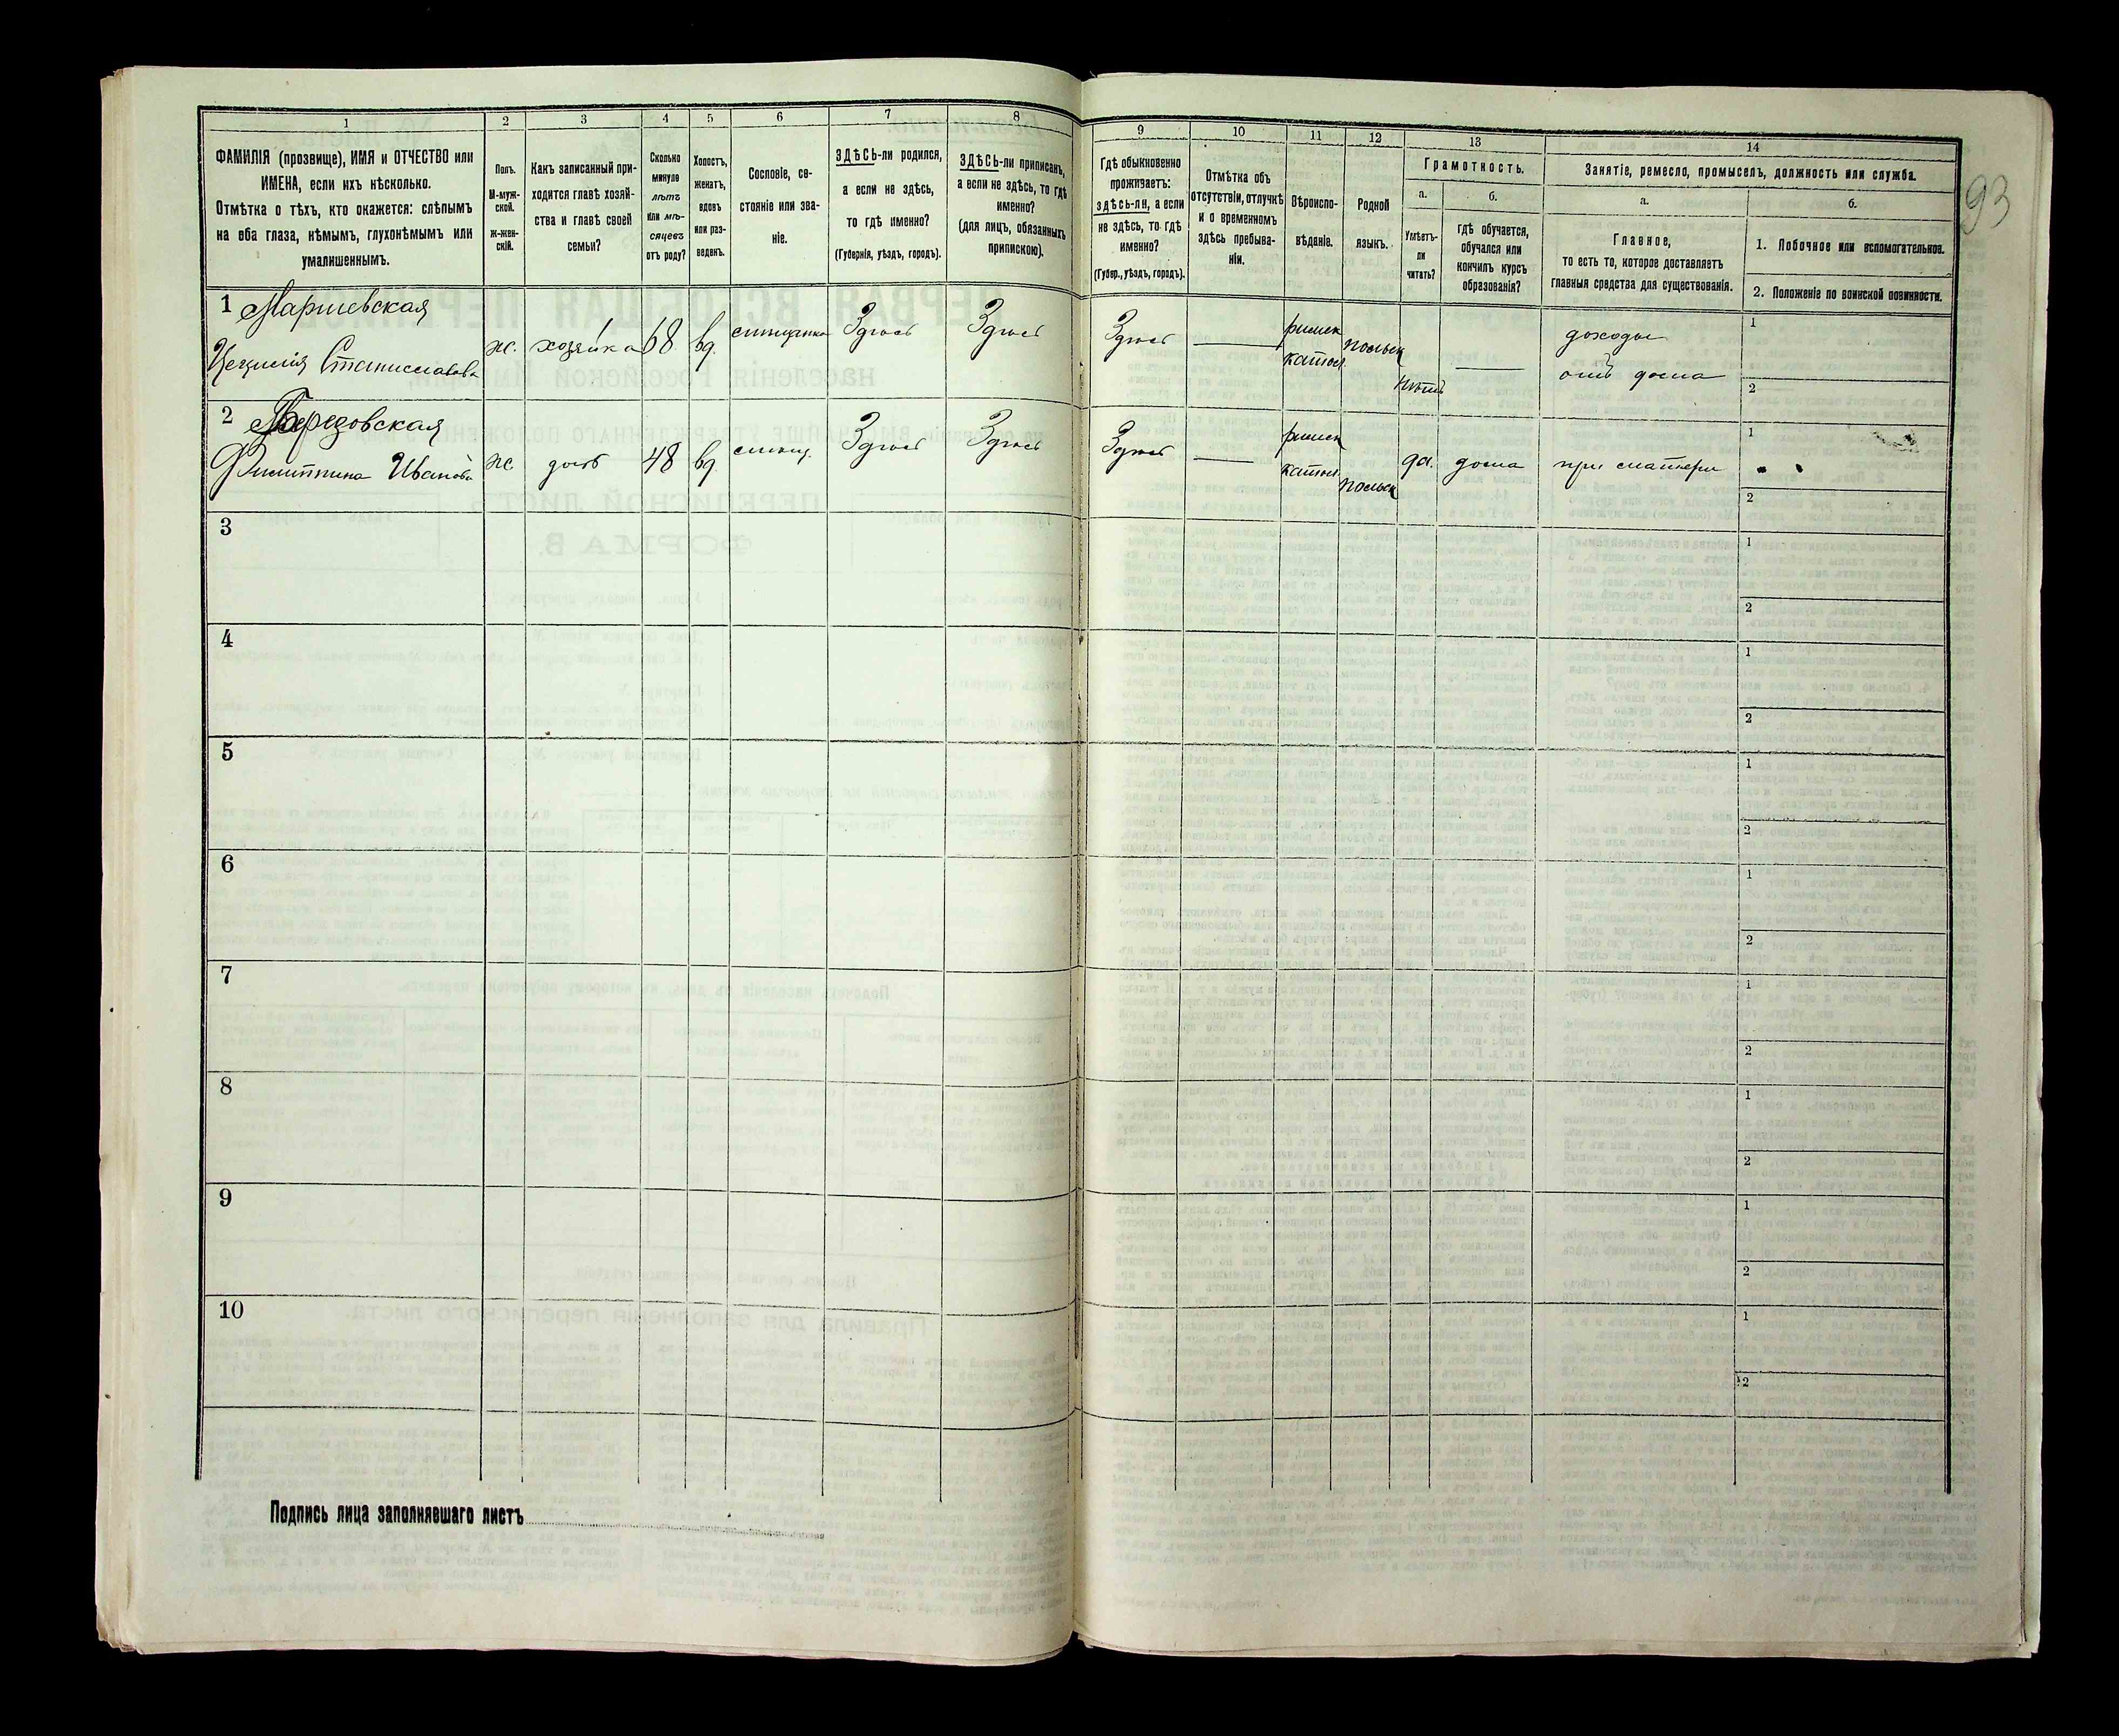 1
ФАМИЛІЯ (прозвище), ИМЯ и ОТЧЕСТВО или
ИМЕНА, если ихъ нѣсколько.
Отмѣтка о тѣхъ, кто окажется: слѣпымъ
на оба глаза, нѣмымъ, глухонѣмымъ или
умалишеннымъ.
2
Полъ.
М-муж-
ской.
ж-жен-
скій.
3
Какъ записанный при-
ходится главѣ хозяй-
ства и главѣ своей
семьи?
4
Сколько
минуло
лѣтъ
или мѣ-
сяцевъ
отъ роду?
5
Холостъ,
женатъ,
вдовъ
или раз-
веденъ.
6
Сословіе, со-
стояніе или зва-
ніе.
7
ЗДѢСЬ-ли родился,
а если не здѣсь,
то гдѣ именно?
(Губернія, уѣздъ, городъ).
8
ЗДѢСЬ-ли приписанъ,
а если не здѣсь, то гдѣ
именно?
(для лицъ, обязанныхъ
припискою).
9
Гдѣ обыкновенно
проживаетъ:
здѣсь-ли, а если
не здѣсь, то гдѣ
именно?
(Губер., уѣздъ, городъ).
10
Отмѣтка объ
отсутствіи, отлучкѣ
и о временномъ
здѣсь пребыва-
ніи.
11
Вѣроиспо-
вѣданіе.
12
Родной
языкъ.
13
Грамотность.
а.
Умѣетъ-
ли
читать?
б.
гдѣ обучается,
обучался или
кончилъ курсъ
образованія?
14
Занятіе, ремесло, промыселъ, должность или служба.
а.
Главное,
то есть то, которое доставляетъ
главныя средства для существованія.
б.
1. Побочное или вспомогательное.
2. Положеніе по воинской повинности.
93
1
Цецилія Станиславова
ж.
хозяйка
68
вд.
Здѣсь
Здѣсь
Здѣсь
римск
катол.
польск
нѣтъ
доходы
отъ дома
1
2
2
Березовская
Филиппина Иванова
ж.
дочь
48
вд.
Здѣсь
Здѣсь
Здѣсь
римск
катол.
польск
да.
дома
при матери
1
2
3
1
2
4
1
2
5
1
2
6
1
2
7
1
2
8
1
2
9
1
2
10
1
2
Подпись лица заполнявшаго листъ